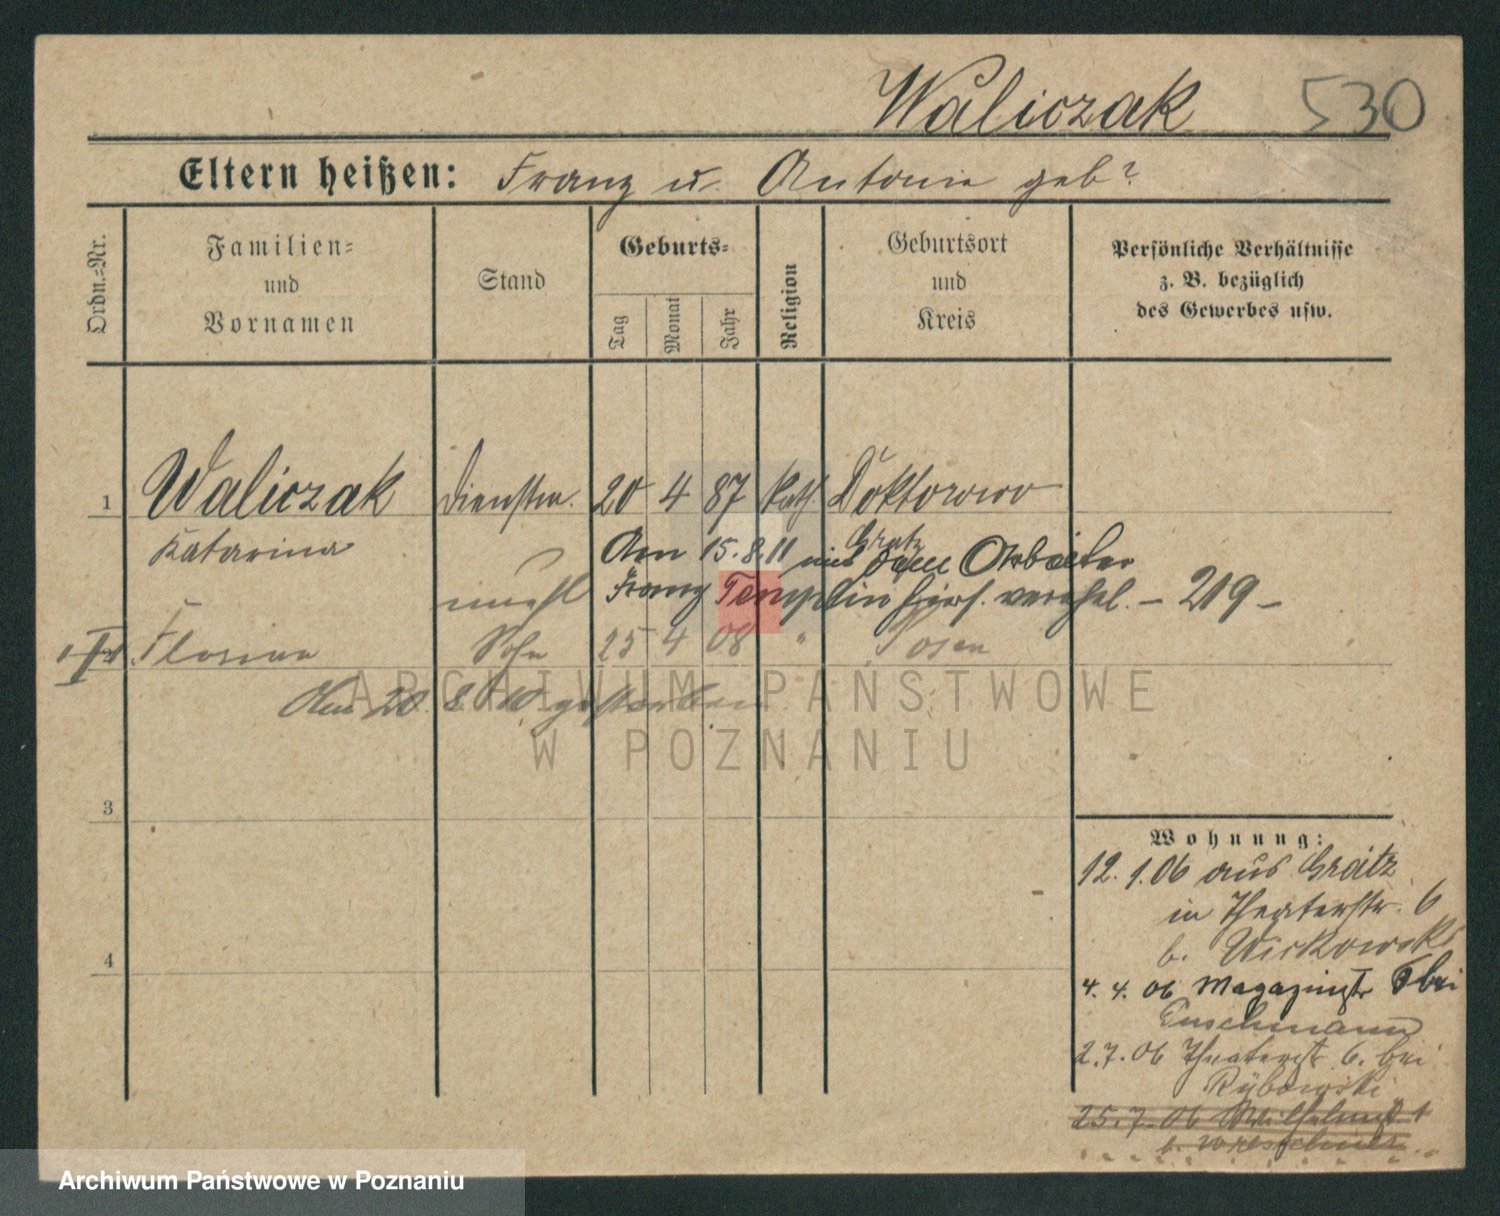 Waliczak 530
Eltern heißen: Franz u. Antonie geb?
Ordn.=Nr.
Familien=
und
Vornamen
Stand
Geburts=
Tag
Monat
Jahr
Religion
Geburtsort
und
Kreis
Persönliche Verhältnisse
z. B. bezüglich
des Gewerbes usw.
1 Waliczak Dienstm. 20 4 87 kath Doktorowo
Katarina Grätz
Am 15.8.11 mit dem Arbeiter
unehl Franz Templin hier verehel. – 219 –
Florian Sohn 25 4 08 " Posen
Am 20. 8. 10 gestorben
ARCHIWUM PAŃSTWOWE
W POZNANIU
3
4
Wohnung:
12. 1. 06 aus Grätz
in Theaterstr. 6
b. Wickowski
4. 4. 06 Magazinstr bei
Tuschmann
2. 7. 06 Theaterstr 6. bei
Rybowski
25. 7. 06 Wilhelmst 1
b. Wreschner
Archiwum Państwowe w Poznaniu